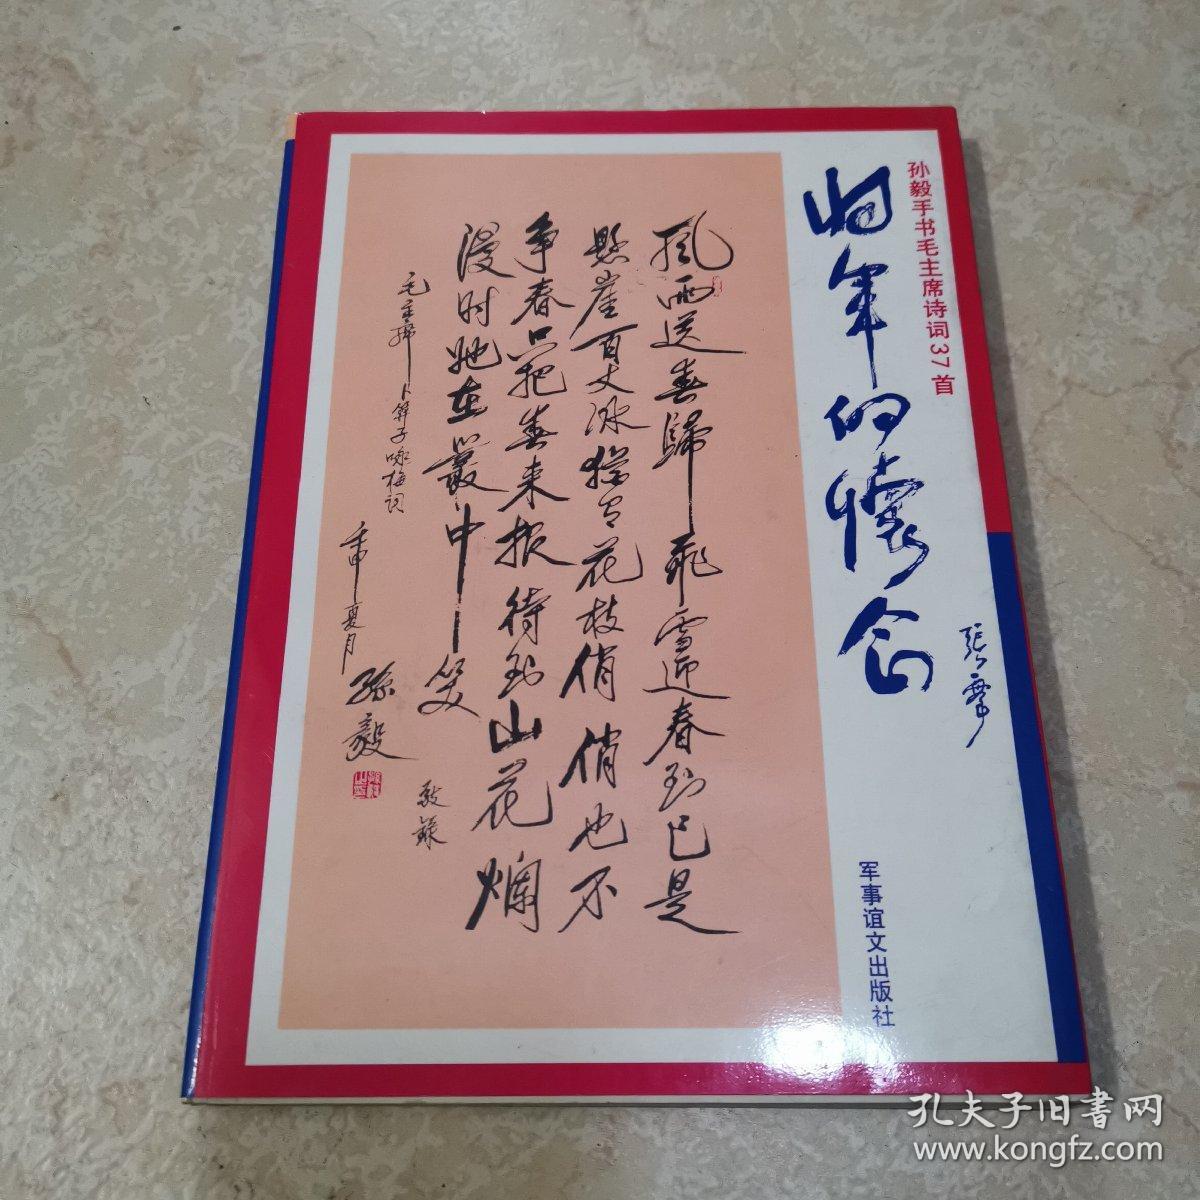 孙毅手书毛主席诗词37首
将军的怀念
张震
军事谊文出版社
風雨送春歸飛雪迎春到已是
懸崖百丈冰犹有花枝俏俏也不
争春只把春来报待到山花爛
漫时她在叢中笑
敬録
毛主席卜算子咏梅词
壬申夏月
孫毅
孔夫子旧书网
www.kongfz.com